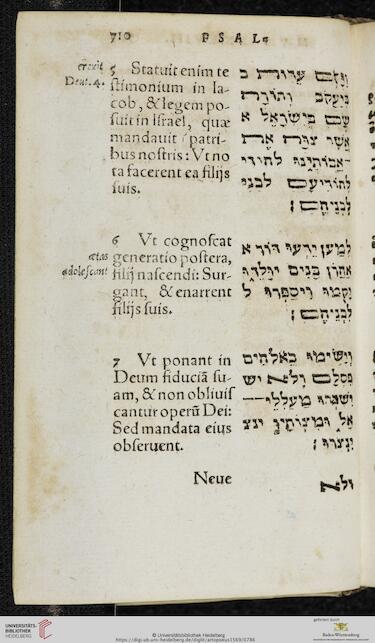 710 PSAL.
erexit
Deut. 4.
5 Statuit enim te
stimonium in Ia-
cob, & legem po-
suit in Israel, quæ
mandauit patri-
bus nostris: Vt no
ta facerent ea filijs
suis.
וַיָּקֶם עֵדוּת ב
בְּיַעֲקֹב וְתוֹרָה
שָׂם בְּיִשְׂרָאֵל א
אֲשֶׁר צִוָּה אֶת
אֲבוֹתֵינוּ לְהוֹדִי
לְהוֹדִיעָם לִבְנֵי
לִבְנֵיהֶם:
ætas
adolescant
6 Vt cognoscat
generatio postera,
filij nascendi: Sur-
gant, & enarrent
filijs suis.
לְמַעַן יֵדְעוּ דּוֹר א
אַחֲרוֹן בָּנִים יִוָּלֵדוּ
יָקֻמוּ וִיסַפְּרוּ ל
לִבְנֵיהֶם:
7 Vt ponant in
Deum fiduciã su-
am, & non obliuis
cantur operũ Dei:
Sed mandata eius
obseruent.
וְיָשִׂימוּ בֵאלֹהִים
כִּסְלָם וְלֹא יש
יִשְׁכְּחוּ מַעַלְלֵי
אֵל וּמִצְוֹתָיו ינצ
יִנְצֹרוּ:
Neue
ולא
UNIVERSITÄTS-
BIBLIOTHEK
HEIDELBERG
© Universitätsbibliothek Heidelberg
https://digi.ub.uni-heidelberg.de/diglit/artopoeus1569/0786
gefördert durch
Baden-Württemberg